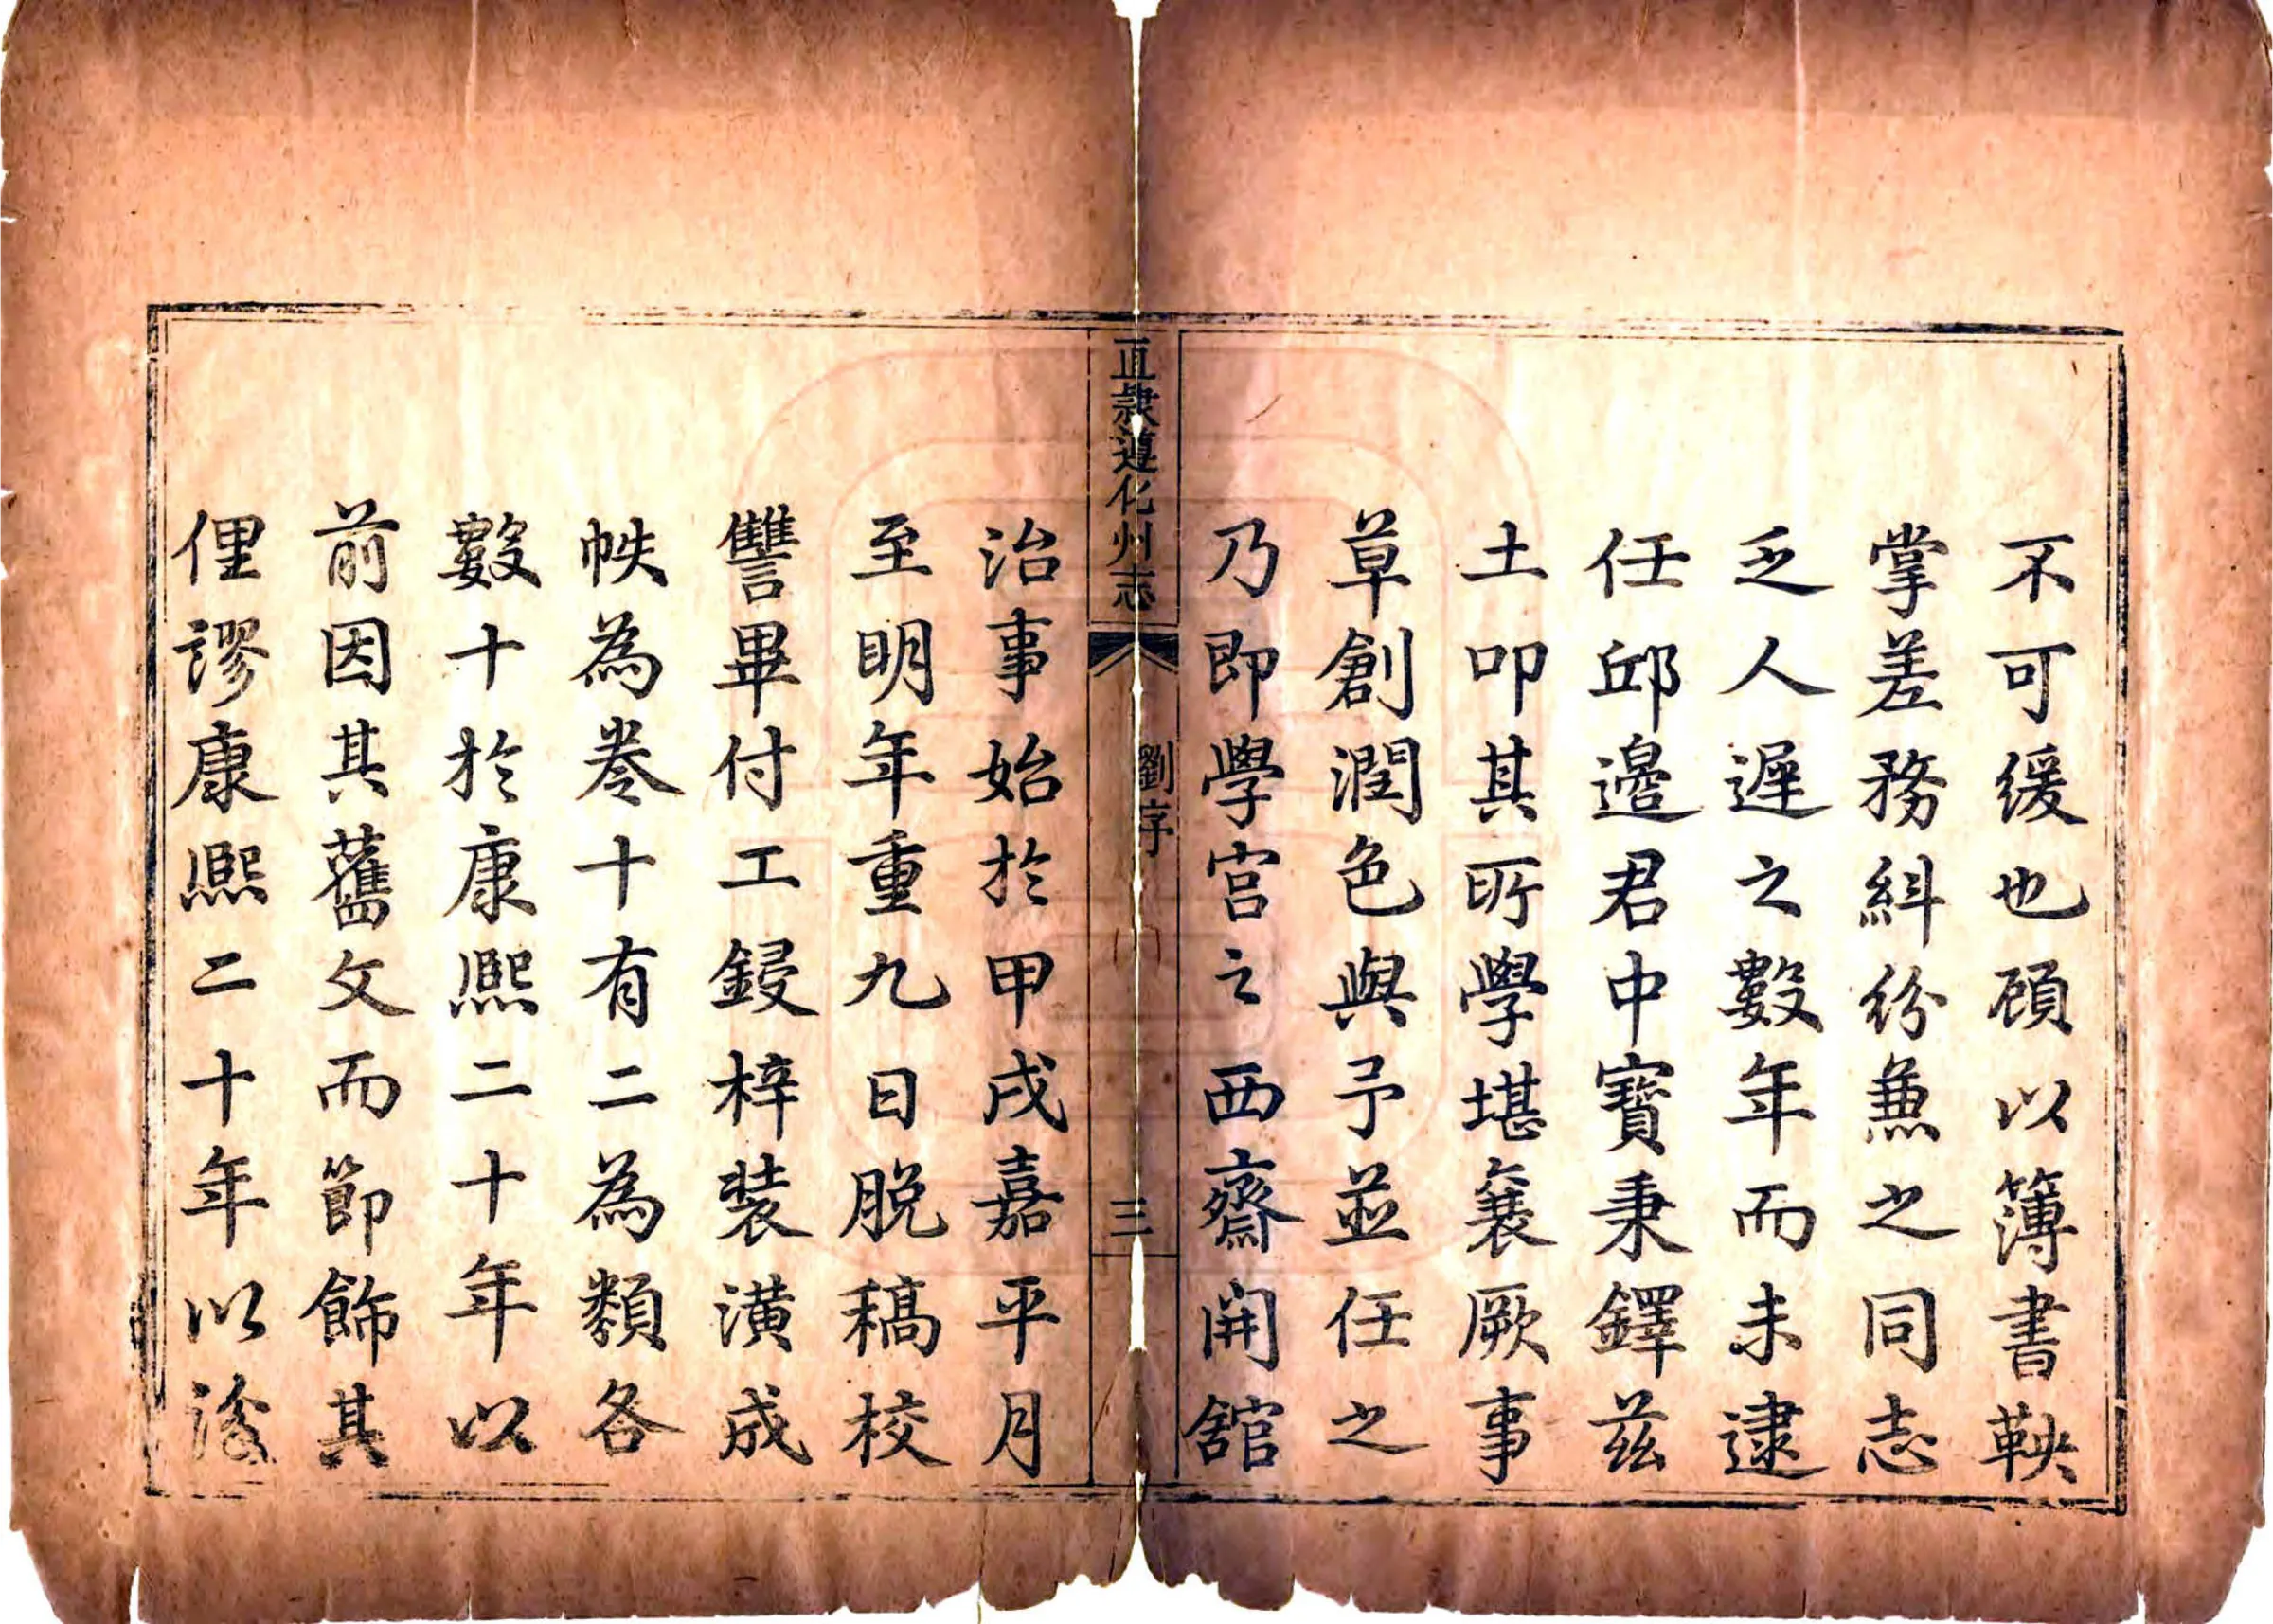 不可緩也顧以簿書鞅
掌差務糾紛兼之同志
乏人遲之數年而未逮
任邱邊君中寶秉鐸茲
土叩其所學堪襄厥事
草創潤色與予並任之
乃即學宮之西齋開舘
直隸遵化州志
劉序
三
治事始於甲戌嘉平月
至明年重九日脫稿校
讐畢付工鋟梓裝潢成
帙為卷十有二為類各
數十於康熙二十年以
前因其舊文而節飾其
俚謬康熙二十年以後